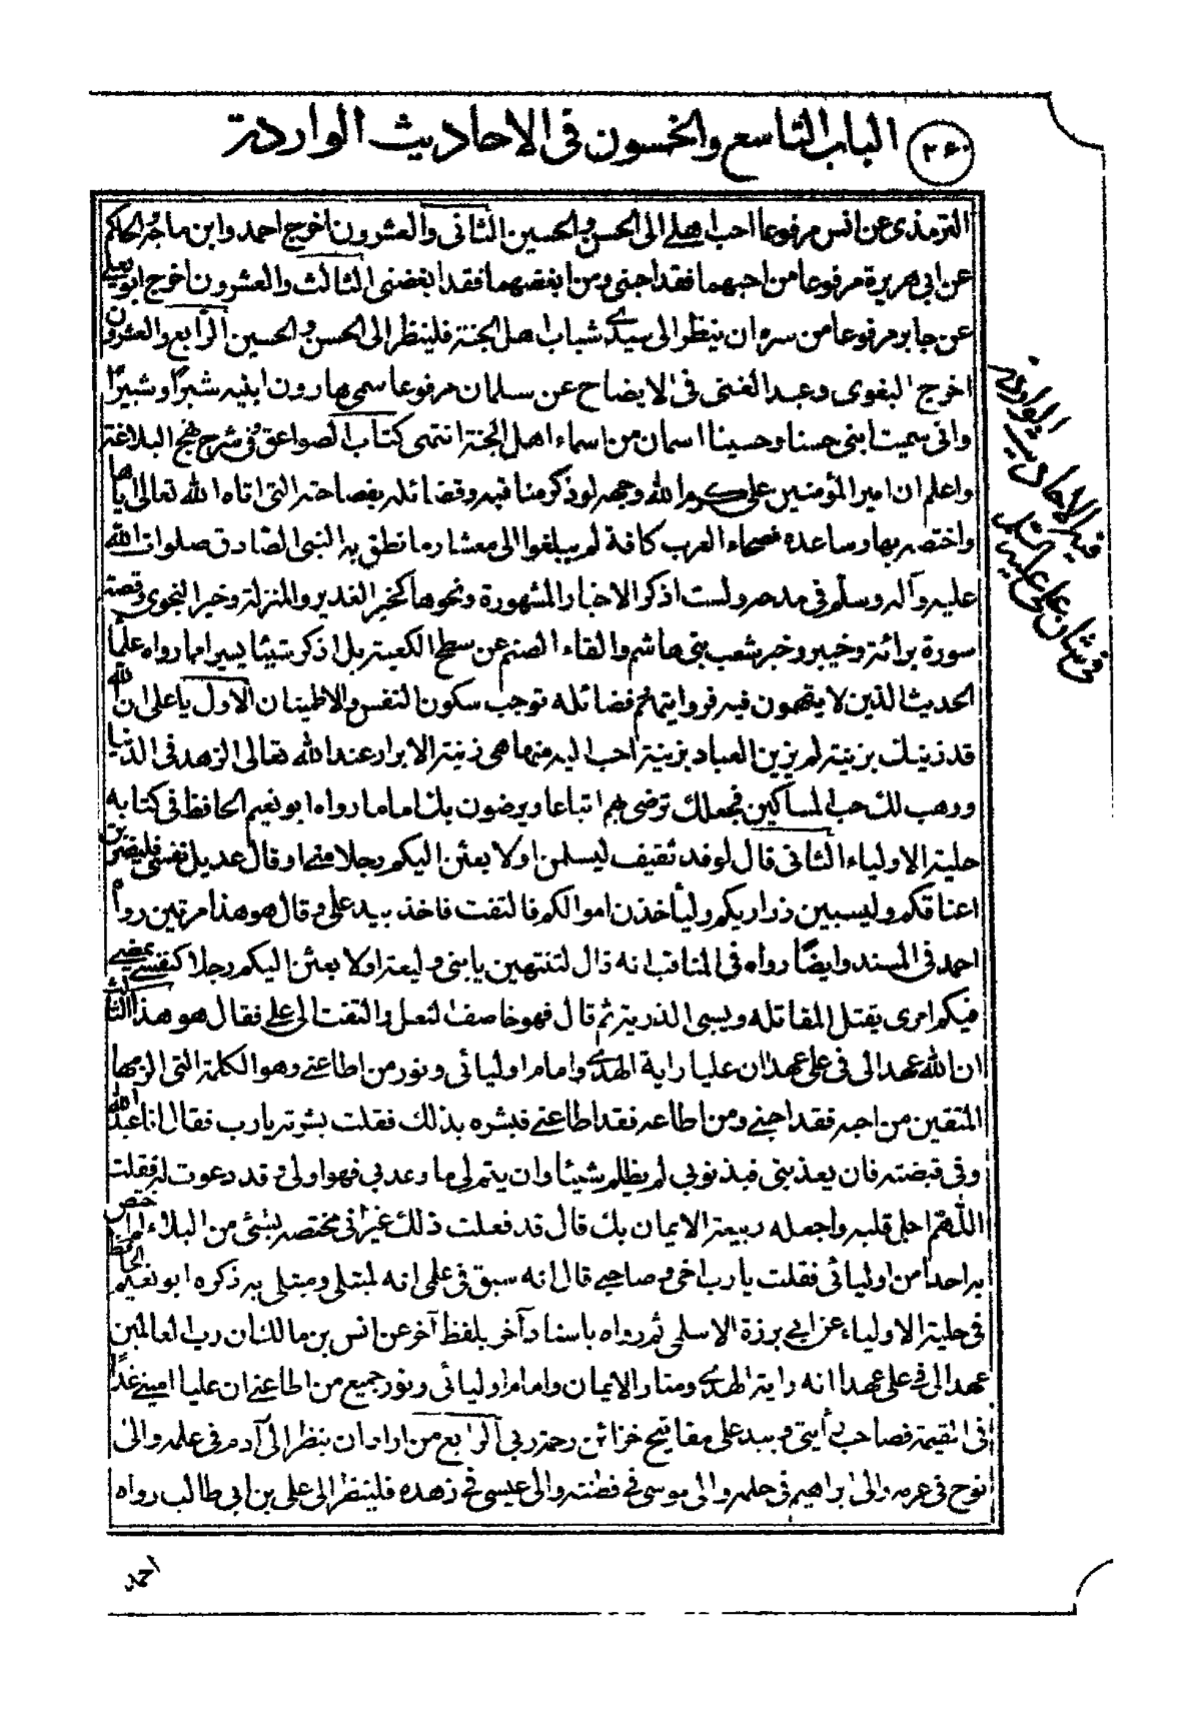 ٢٦٠ الباب التاسع والخمسون فى الاحاديث الواردة
الترمذى عن انس مرفوعا احب اهلى الى الحسن والحسين الثانى والعشرون اخرج احمد وابن ماجة والحاكم
عن ابى هريرة مرفوعا من احبهما فقد احبنى ومن ابغضهما فقد ابغضنى الثالث والعشرون اخرج ابو يعلى
عن جابر مرفوعا من سره ان ينظر الى سيدى شباب اهل الجنة فلينظر الى الحسن والحسين الرابع والعشرون
اخرج البغوى وعبد الغنى فى الايضاح عن سلمان مرفوعا سمى هارون ابنيه شبرًا وشبيرًا
وانى سميت ابنى حسنا وحسينا اسمان من اسماء اهل الجنة انتهى كتاب الصواعق وفى شرح نهج البلاغة
واعلم ان امير المؤمنين على كرم الله وجهه لو ذكر مناقبه وفضائله بفصاحته التى اتاه الله تعالى اياها
واختصه بها وساعده فصحاء العرب كافة لم يبلغوا الى معشار ما نطق به النبى الصادق صلوات الله
عليه وآله وسلم فى مدحه ولست اذكر الاخبار المشهورة ونحوها كخبر الغدير والمنزلة وخبر النجوى وقصة
سورة برائة وخيبر وخبر شعب بنى هاشم والقاء الصنم عن سطح الكعبة بل اذكر شيئا يسيرا مما رواه علماء
الحديث الذين لا يتهمون فيه فروايتهم فضائله توجب سكون النفس والاطمينان الاول يا على ان الله
قد زينك بزينة لم يزين العباد بزينة احب اليه منها هى زينة الابرار عند الله تعالى الزهد فى الدنيا
ووهب لك حب المساكين فجعلك ترضى بهم اتباعا ويرضون بك اماما رواه ابو نعيم الحافظ فى كتابه
حلية الاولياء الثانى قال لوفد ثقيف ليسلمن او لابعثن اليكم رجلا منى او قال عديل نفسى فليضربن
اعناقكم وليسبين ذراريكم وليأخذن اموالكم فالتفت فاخذ بيد على وقال هو هذا مرتين رواه
احمد فى المسند وايضًا رواه فى المناقب انه قال لتنتهين يا بنى وليعة او لابعثن اليكم رجلا كنفسى يمضى
فيكم امرى يقتل المقاتله ويسبى الذرية ثم قال فهو خاصف النعل والتفت الى على فقال هو هذا الثالث
ان الله عهد الى فى على عهدا ان عليا راية الهدى وامام اوليائى ونور من اطاعنى وهو الكلمة التى الزمها
المتقين من احبه فقد احبنى ومن اطاعه فقد اطاعنى فبشره بذلك فقلت بشرته يا رب فقال انا عبد الله
وفى قبضته فان يعذبنى فبذنوبى لم يظلم شيئا وان يتم لى ما وعدنى فهو اولى وقد دعوت له فقلت
اللهم اجل قلبه واجعله ربيعة الايمان بك قال قد فعلت ذلك غير انى مختصه بشئ من البلاء لم اختص
به احدا من اوليائى فقلت يا رب اخى وصاحبى قال انه سبق فى علمى انه لمبتلى ومبتلى به ذكره ابو نعيم الحافظ
فى حلية الاولياء عن ابى برزة الاسلمى ثم رواه باسناد آخر بلفظ آخر عن انس بن مالك ان رب العالمين
عهد الى فى على عهدا انه راية الهدى ومنار الايمان وامام اوليائى ونور جميع من اطاعنى ان عليا امينى غدًا
فى القيمة وصاحب رأيتى وبيد على مفاتيح خزائن رحمة ربى الرابع من اراد ان ينظر الى آدم فى علمه والى
نوح فى عزمه والى ابراهيم فى حلمه والى موسى فى فطنته والى عيسى فى زهده فلينظر الى على بن ابى طالب رواه
فيه الاحاديث الواردة
فى شان على عليه السلام
احمد